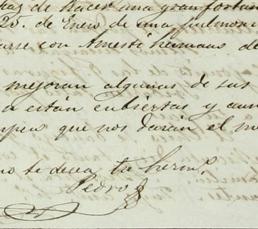 de hacer una gran fortuna
25. de Enero de una pulmoní
con Amest hermano de
mejoran algunas de sus
a están cubiertas y aun
que nos darán el m
no te desea tu herm.º
Pedro